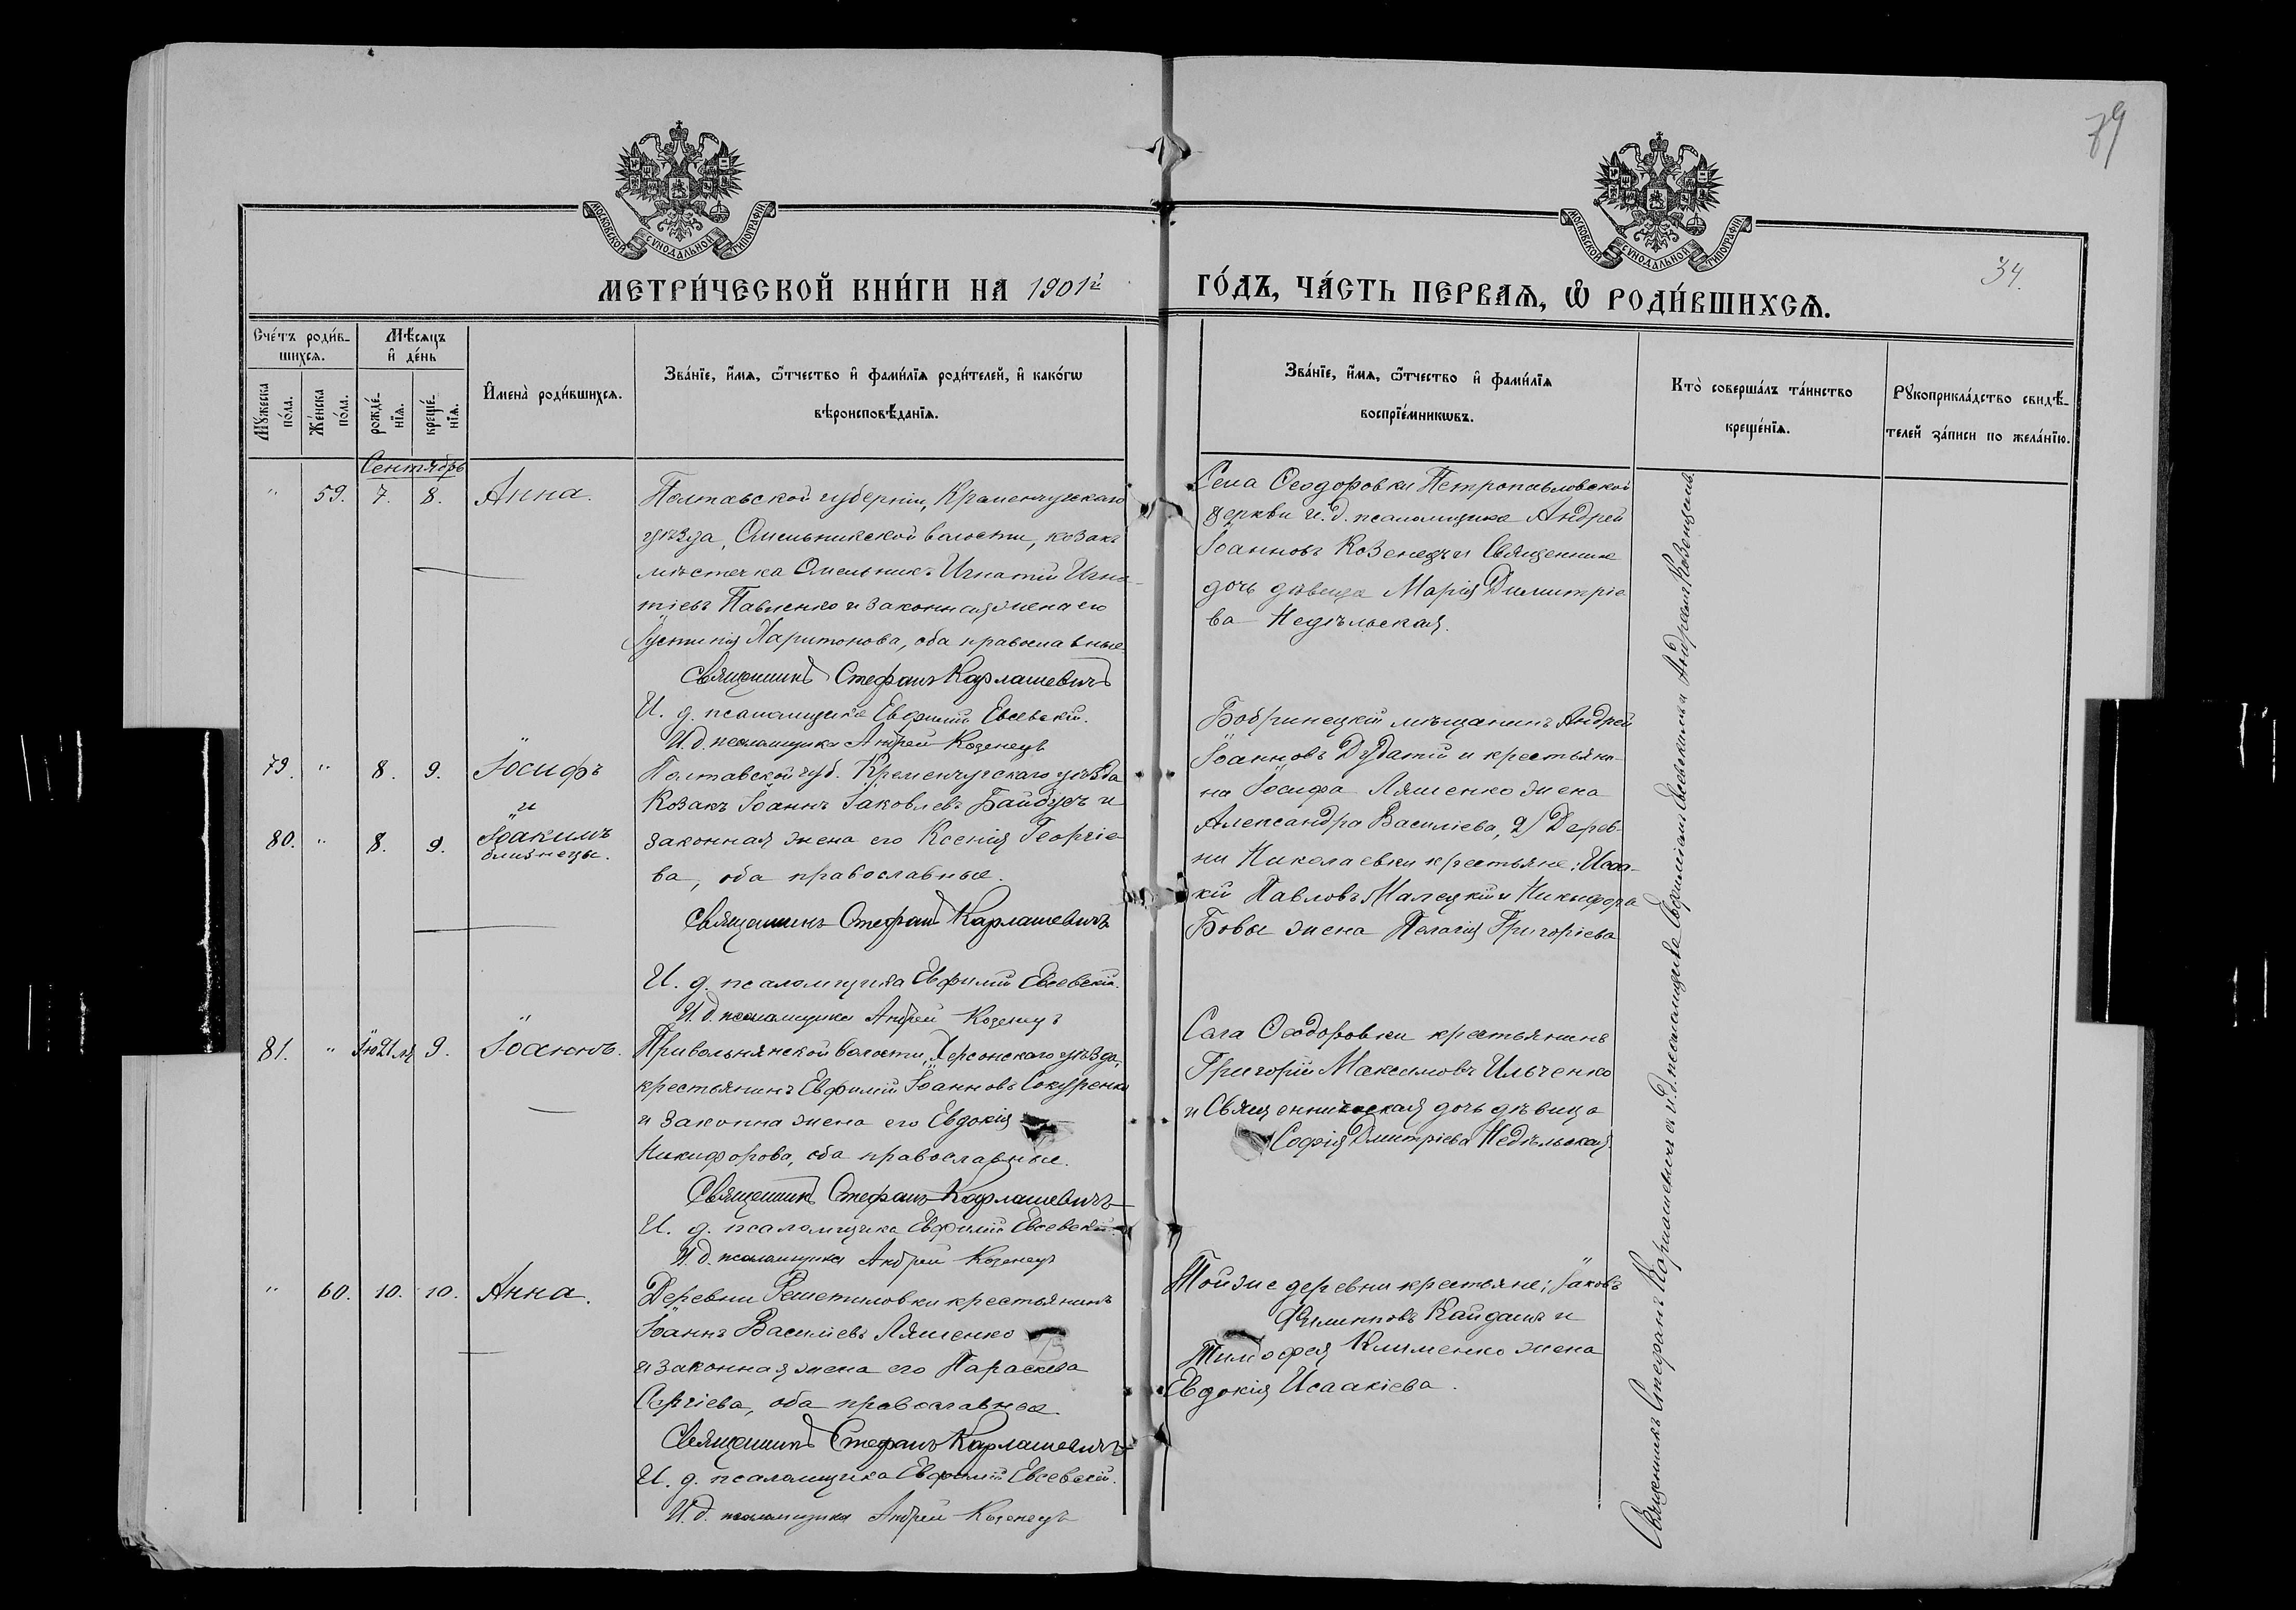 79
34.
МОСКОВСКОЙ СѴНОДАЛЬНОЙ ТИПОГРАФІИ
МОСКОВСКОЙ СѴНОДАЛЬНОЙ ТИПОГРАФІИ
МЕТРИ́ЧЕСКОЙ КНИ́ГИ НА 1901й
ГО́ДЪ, ЧА́СТЬ ПЕРВАѦ, Ѽ РОДИ́ВШИХСѦ.
Счéтъ роди́в-
шихсѧ.
Мꙋ́жеска пóла.
Жéнска пóла.
Мѣ́сѧцъ
и҆ дéнь
рождé-
нїѧ.
крещé-
нїѧ.
И҆менà роди́вшихсѧ.
Звáнїе, и҆́мѧ, ѻ҆́тчество и҆ фами́лїѧ роди́телей, и҆ какóгѡ
вѣроисповѣ́данїѧ.
Звáнїе, и҆́мѧ, ѻ҆́тчество и҆ фами́лїѧ
воспрїéмникѡвъ.
Ктò совершáлъ тáинство
крещéнїѧ.
Рꙋкоприклáдство свидѣ́-
телей зáписи по желáнїю.
Сентябрь
" 59. 7. 8. Анна.
Полтавской губерніи, Кременчугскаго
уѣзда, Омельникской волости, козакъ
мѣстечка Омельникъ Игнатій Игна-
тіевъ Павленко и законная жена его
Іустинія Харитонова, оба православные.
Священникъ Стефанъ Карлашевичъ
И. д. псаломщика Евфимій Евсевскій.
И. д. псаломщика Андрей Козенецъ
Села Ѳеодоровки Петропавловской
церкви и. д. псаломщика Андрей
Іоанновъ Козенецъ и Священника
дочь дѣвица Марія Димитріе
ва Недѣльская.
79. " 8. 9. Іосифъ
и
80. " 8. 9. Іоакимъ
близнецы.
Полтавской губ. Кременчугскаго уѣзда
Козакъ Іоаннъ Іаковлевъ Байбузъ и
законная жена его Ксенія Георгіе
ва, оба православные.
Священникъ Стефанъ Карлашевичъ
И. д. псаломщика Евфимій Евсевскій.
И. д. псаломщика Андрей Козенецъ
Бобринецкій мѣщанинъ Андрей
Іоанновъ Дудатій и крестьяни-
на Іосифа Ляшенко жена
Александра Василіева, 2) Дерев-
ни Николаевки крестьяне: Исаа-
кій Павловъ Малецкій и Никифора
Бовы жена Пелагія Григоріева
81. " Ію 21 ля 9. Іоаннъ.
Привольнянской волости, Херсонскаго уѣзда,
крестьянинъ Евфимій Іоанновъ Сокуренко
и законна жена его Евдокія
Никифорова, оба православные.
Священникъ Стефанъ Карлашевичъ
И. д. псаломщика Евфимій Евсевскій.
И. д. псаломщика Андрей Козенецъ
Села Ѳеодоровки крестьянинъ
Григорій Максимовъ Ильченко
и Священническая дочь дѣвица
Софія Дмитріева Недѣльская
" 60. 10. 10. Анна.
Деревни Решетиловки крестьянинъ
Іоаннъ Василіевъ Ляшенко
и законная жена его Параскева
Сергіева, оба православные.
Священникъ Стефанъ Карлашевичъ
И. д. псаломщика Евфимій Евсевскій.
И. д. псаломщика Андрей Козенецъ
Той же деревни крестьяне: Іаковъ
Филипповъ Кайданъ и
Тимофея Клименко жена
Евдокія Исаакіева.
Священникъ Стефанъ Карлашевичъ съ и. д. псаломщика Евфиміемъ Евсевскимъ и Андреемъ Козенцемъ.